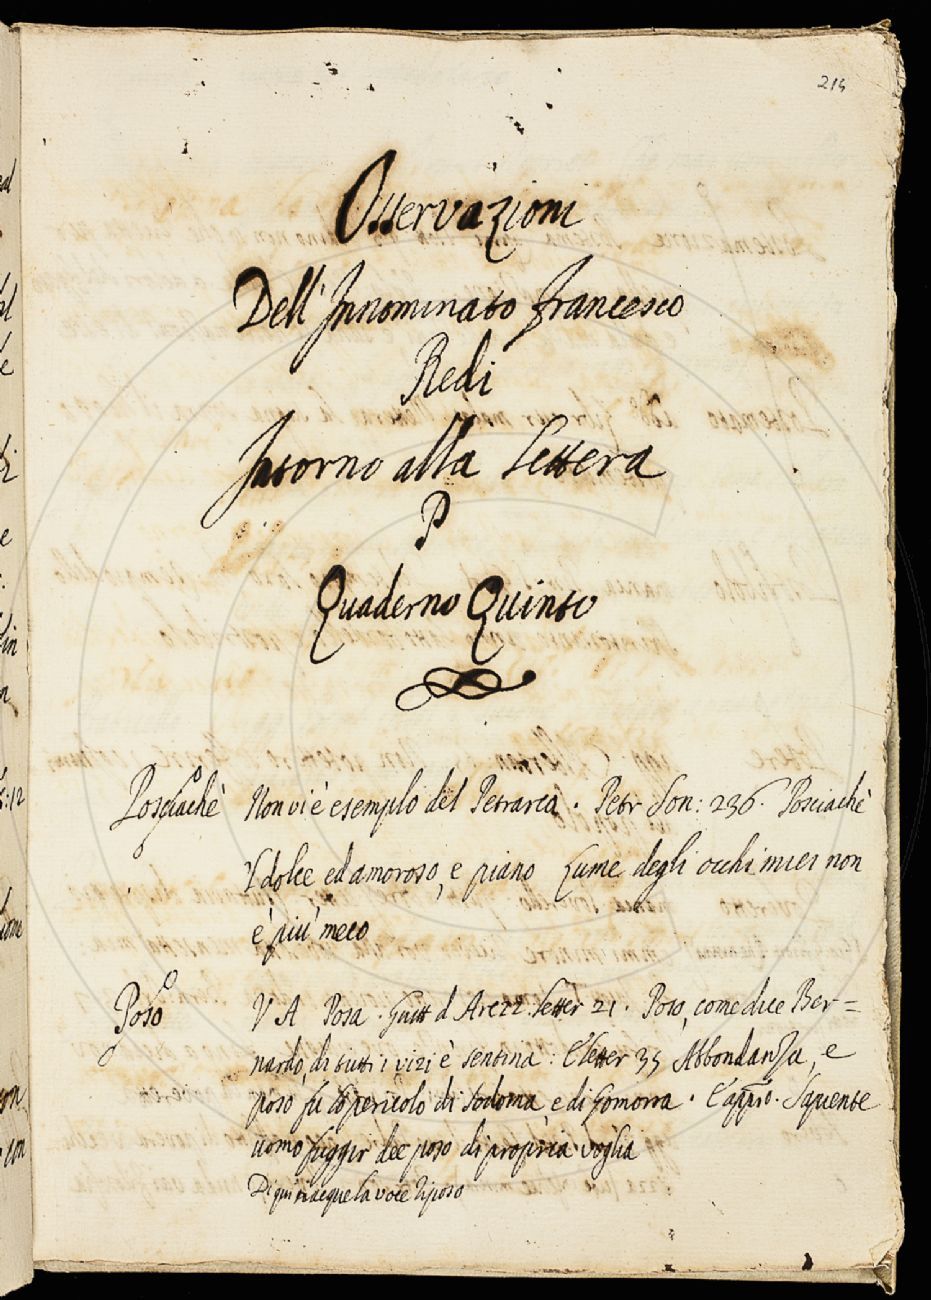 214
Osservazioni
Dell'Innominato Francesco
Redi
Intorno alla Lettera
P
Quaderno Quinto
Posciachè Non vi è esempio del Petrarca. Petr Son: 236. Posciachè
'l dolce ed amoroso, e piano Lume degli occhi miei non
è più meco
Poso V A Posa. Guitt d Arezz. Letter 21. Poso, come dice Ber=
nardo, di tutti i vizi è sentina: E letter 35 Abbondanza, e
poso fu pericolo di Sodoma e di Gomorra. E appso. Sapiente
uomo fuggir dee poso di propria voglia
Di qui nacque la voce riposo